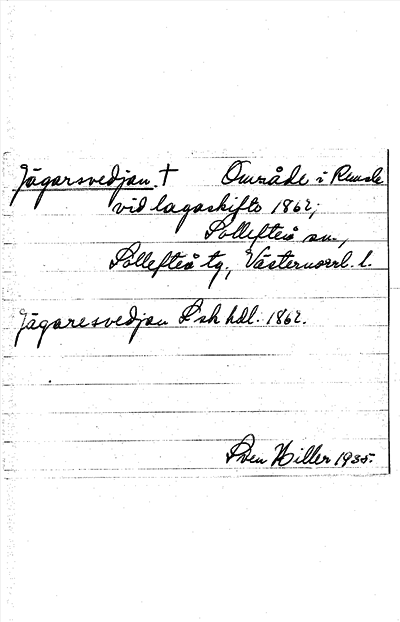 Jägarsvedjan. † Område i Remsle
vid lagaskifte 1862;
Sollefteå sn.,
Sollefteå tg., Västernorrl. l.
Jägaresvedjan L sk hdl. 1862.
Sven Hiller 1935.